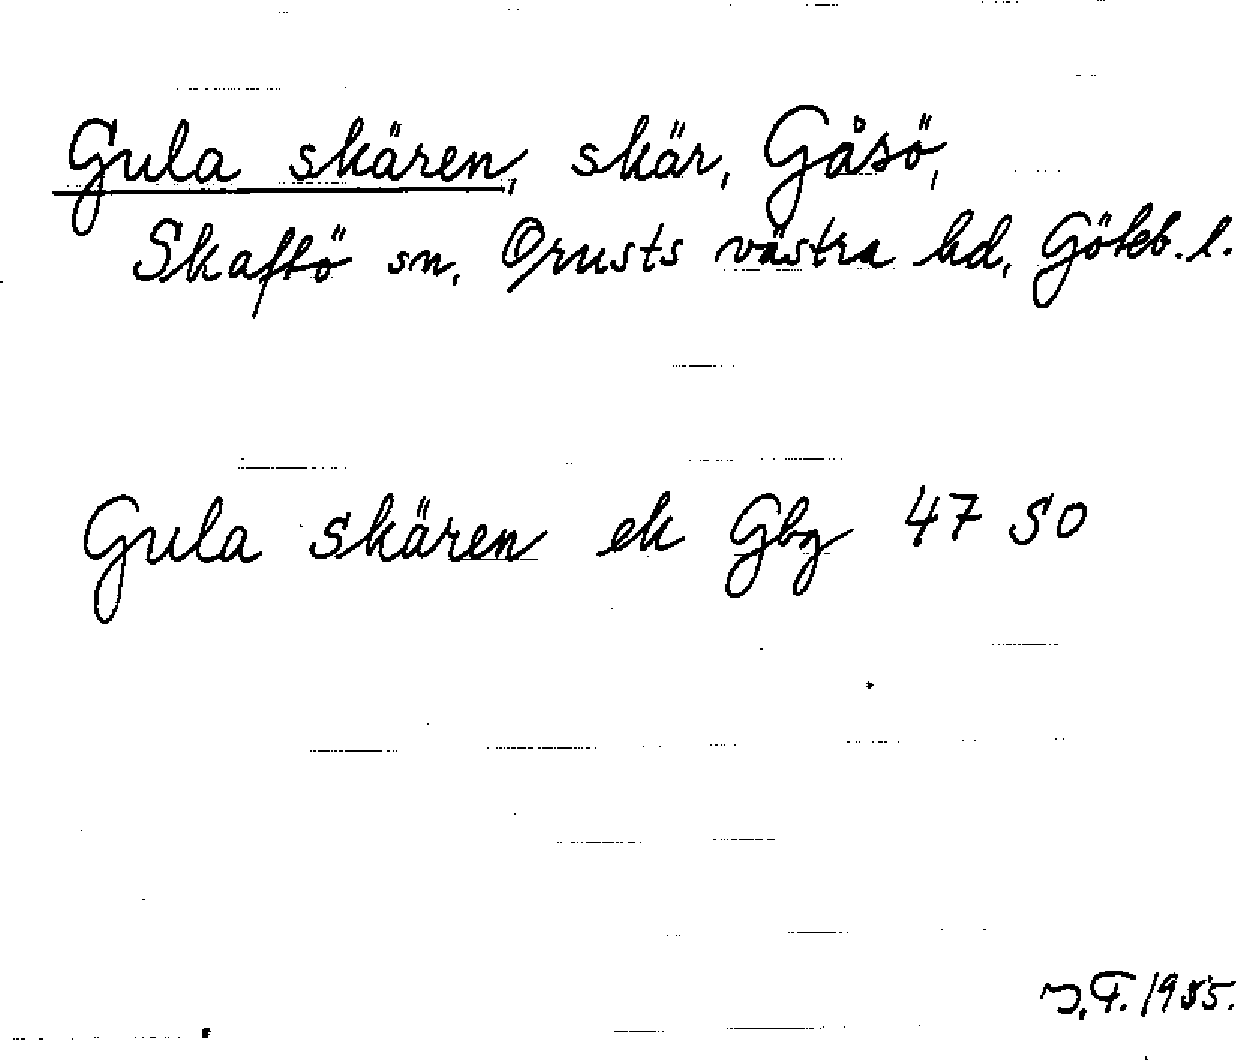 Gula skären, skär, Gåsö,
Skaftö sn, Orusts västra hd, Göteb. l.
Gula skären ek Gbg 47 SO
J.F. 1955.